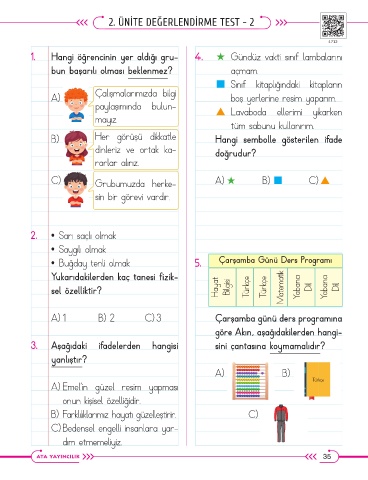 2. ÜNİTE DEĞERLENDİRME TEST - 2
1. Hangi öğrencinin yer aldığı gru-
bun başarılı olması beklenmez?
A) Çalışmalarımızda bilgi
paylaşımında bulun-
mayız.
B) Her görüşü dikkatle
dinleriz ve ortak ka-
rarlar alırız.
C) Grubumuzda herke-
sin bir görevi vardır.
2. • Sarı saçlı olmak
• Saygılı olmak
• Buğday tenli olmak
Yukarıdakilerden kaç tanesi fizik-
sel özelliktir?
A) 1 B) 2 C) 3
3. Aşağıdaki ifadelerden hangisi
yanlıştır?
A) Emel'in güzel resim yapması
onun kişisel özelliğidir.
B) Farklılıklarımız hayatı güzelleştirir.
C) Bedensel engelli insanlara yar-
dım etmemeliyiz.
4. ★ Gündüz vakti sınıf lambalarını
açmam.
■ Sınıf kitaplığındaki kitapların
boş yerlerine resim yaparım.
▲ Lavaboda ellerimi yıkarken
tüm sabunu kullanırım.
Hangi sembolle gösterilen ifade
doğrudur?
A) ★ B) ■ C) ▲
5. Çarşamba Günü Ders Programı
Hayat Bilgisi
Türkçe
Türkçe
Matematik
Yabancı Dil
Yabancı Dil
Çarşamba günü ders programına
göre Akın, aşağıdakilerden hangi-
sini çantasına koymamalıdır?
A) B) Türkçe
C)
ATA YAYINCILIK
35